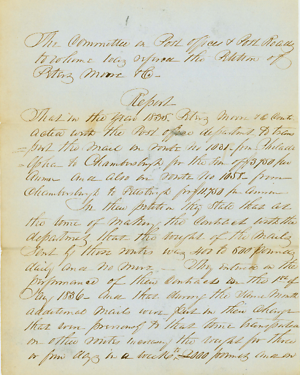 The Committee on Post offices & Post Roads
to whom was referred the Petition of
Peters Moore & Co
Report
That in the year 1835 Peters Moore & Co Cont
acted with the Post office department to trans
port the mail in route no 1031 from Philadel
phia to Chambersburgh for the sum of $3,750 per
annum and also on route no 1055 from
Chambersburgh to Pittsburgh for per annum
In their petition they State that at
the time of making the Contracts with the
department that the weight of the Mails
Sent by these routes was 400 to 500 pounds
daily and no more They entered on the
performance of their contracts on the 1st of
Jany 1836 and that during the same month
additional Mails were put in their charge
that were previously to that time transported
on other routes the weight for three
or four days in a week to 2000 pounds and on